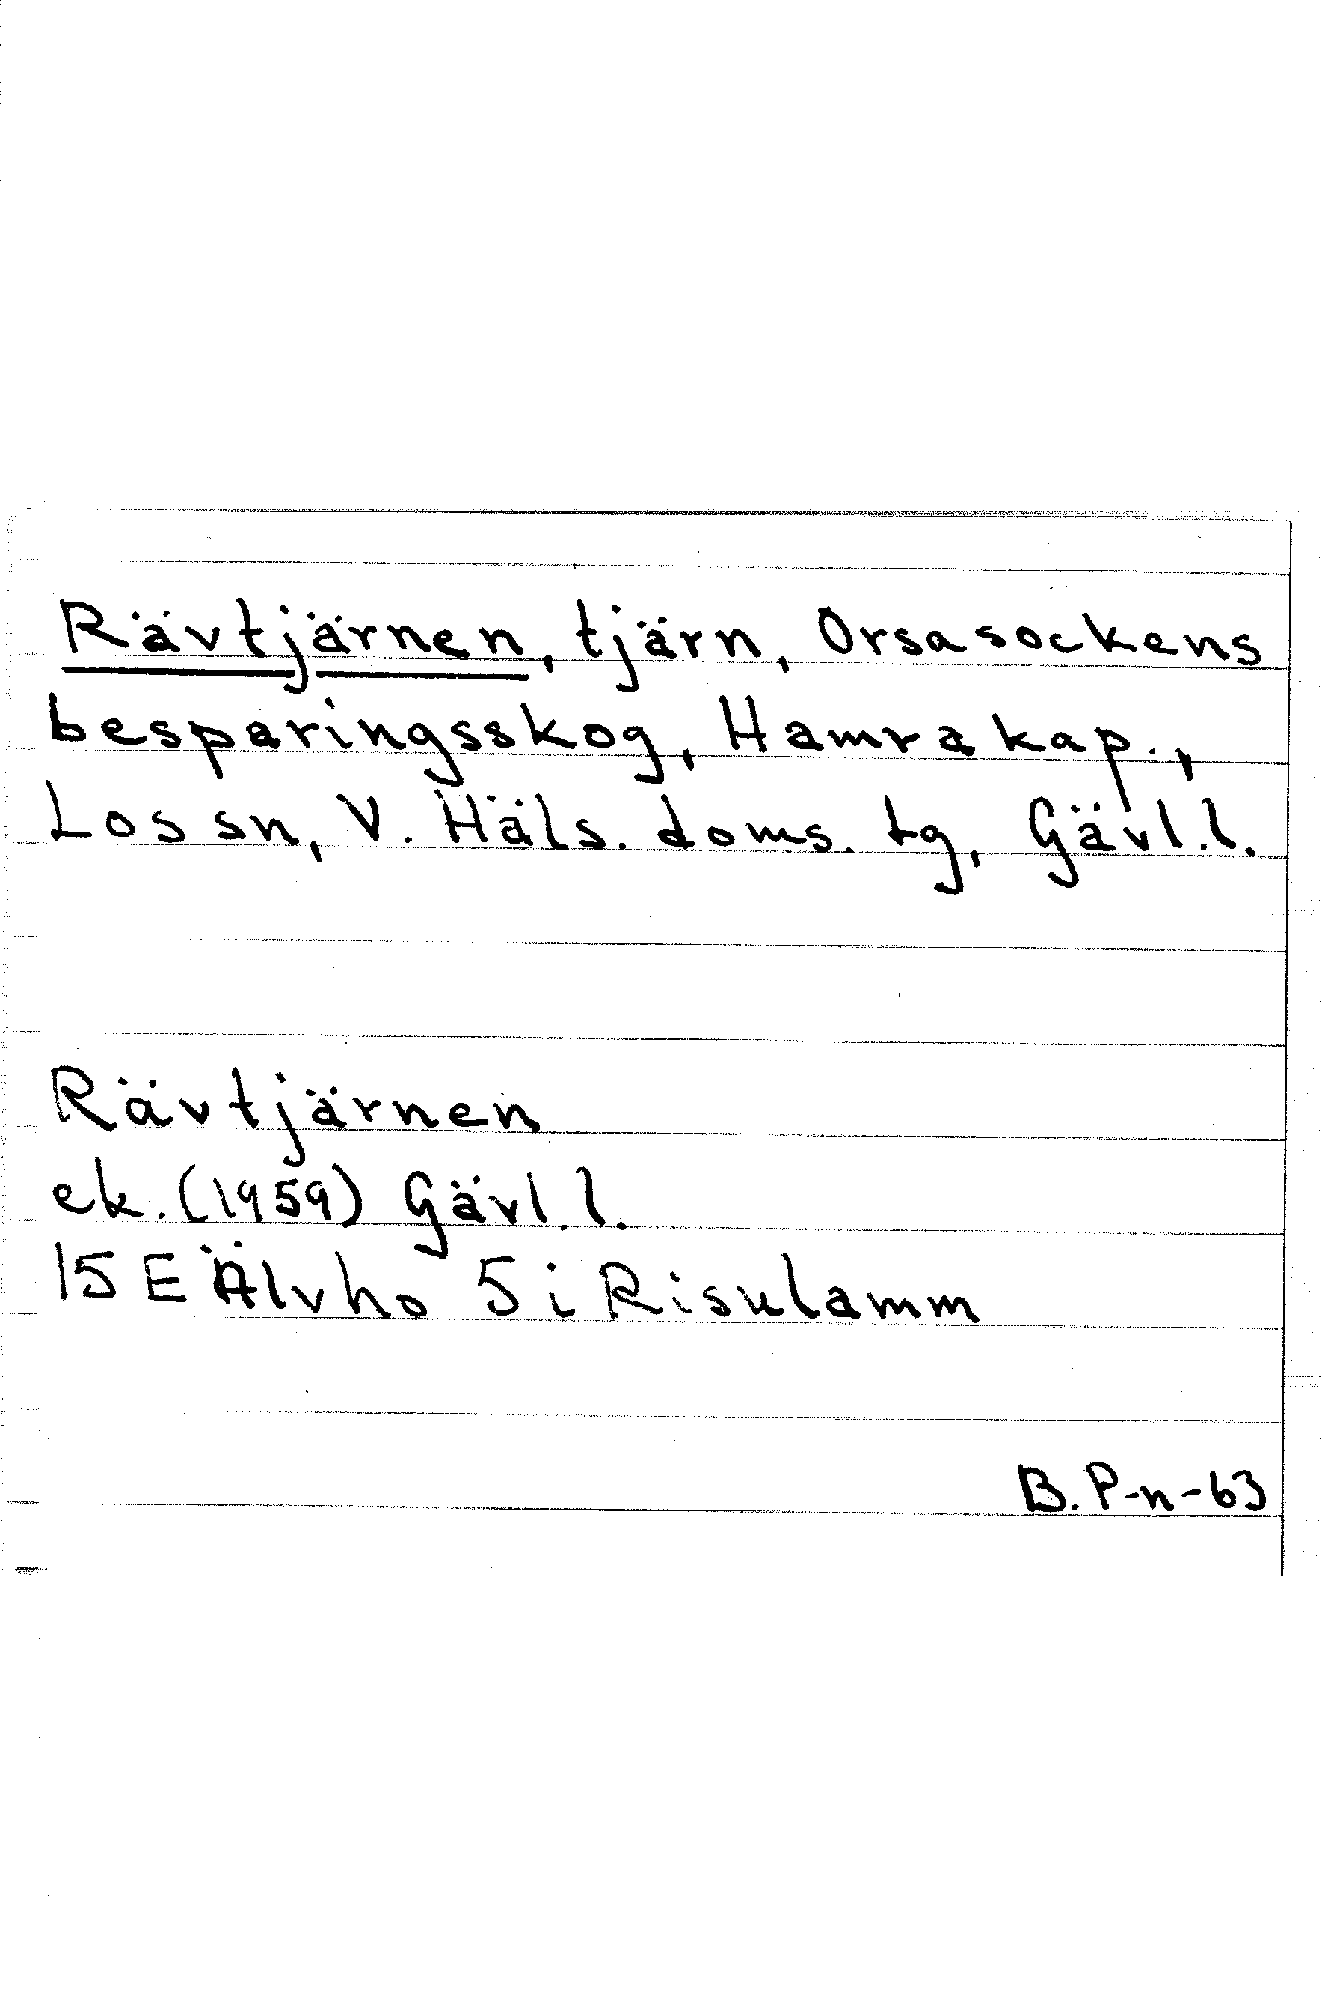 Rävtjärnen, tjärn, Orsa sockens
besparingsskog, Hamra kap.,
Los sn, V. Häls. doms. tg, Gävl.l.
Rävtjärnen
ek. (1959) Gävl.l.
15 E Älvho 5 i Risulamm
B. P-n-63